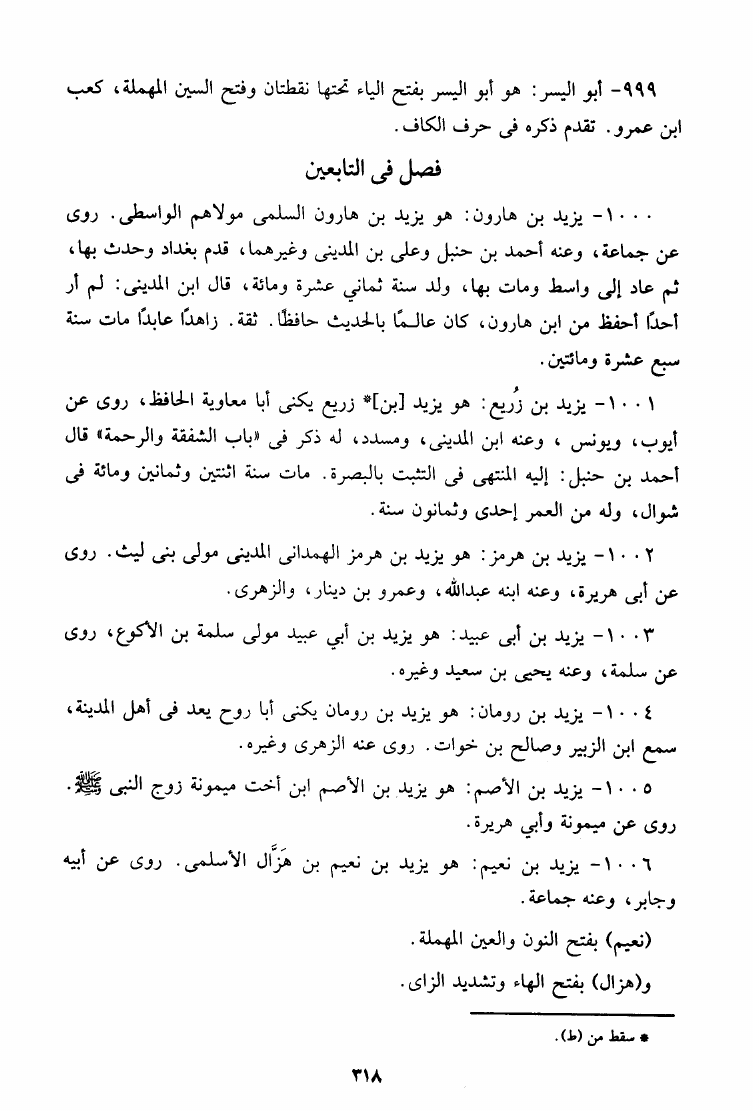 ٩٩٩- أبو اليسر: هو أبو اليسر بفتح الياء تحتها نقطتان وفتح السين المهملة، كعب
ابن عمرو. تقدم ذكره فى حرف الكاف.
فصل فى التابعين
١٠٠٠- يزيد بن هارون: هو يزيد بن هارون السلمى مولاهم الواسطى. روى
عن جماعة، وعنه أحمد بن حنبل وعلى بن المدينى وغيرهما، قدم بغداد وحدث بها،
ثم عاد إلى واسط ومات بها، ولد سنة ثماني عشرة ومائة، قال ابن المدينى: لم أر
أحدًا أحفظ من ابن هارون، كان عالـمًا بالحديث حافظًا. ثقة. زاهدًا عابدًا مات سنة
سبع عشرة ومائتين.
١٠٠١- يزيد بن زُريع: هو يزيد [بن]* زريع يكنى أبا معاوية الحافظ، روى عن
أيوب، ويونس ، وعنه ابن المدينى، ومسدد، له ذكر فى «باب الشفقة والرحمة» قال
أحمد بن حنبل: إليه المنتهى فى التثبت بالبصرة. مات سنة اثنتين وثمانين ومائة فى
شوال، وله من العمر إحدى وثمانون سنة.
١٠٠٢- يزيد بن هرمز: هو يزيد بن هرمز الهمدانى المدينى مولى بنى ليث. روى
عن أبى هريرة، وعنه ابنه عبدالله، وعمرو بن دينار، والزهرى.
١٠٠٣- يزيد بن أبى عبيد: هو يزيد بن أبي عبيد مولى سلمة بن الأكوع، روى
عن سلمة، وعنه يحيى بن سعيد وغيره.
١٠٠٤- يزيد بن رومان: هو يزيد بن رومان يكنى أبا روح يعد فى أهل المدينة،
سمع ابن الزبير وصالح بن خوات. روى عنه الزهرى وغيره.
١٠٠٥- يزيد بن الأصم: هو يزيد بن الأصم ابن أخت ميمونة زوج النبى ﷺ.
روى عن ميمونة وأبي هريرة.
١٠٠٦- يزيد بن نعيم: هو يزيد بن نعيم بن هَزَّال الأسلمى. روى عن أبيه
وجابر، وعنه جماعة.
(نعيم) بفتح النون والعين المهملة.
و(هزال) بفتح الهاء وتشديد الزاى.
* سقط من (ط).
٣١٨